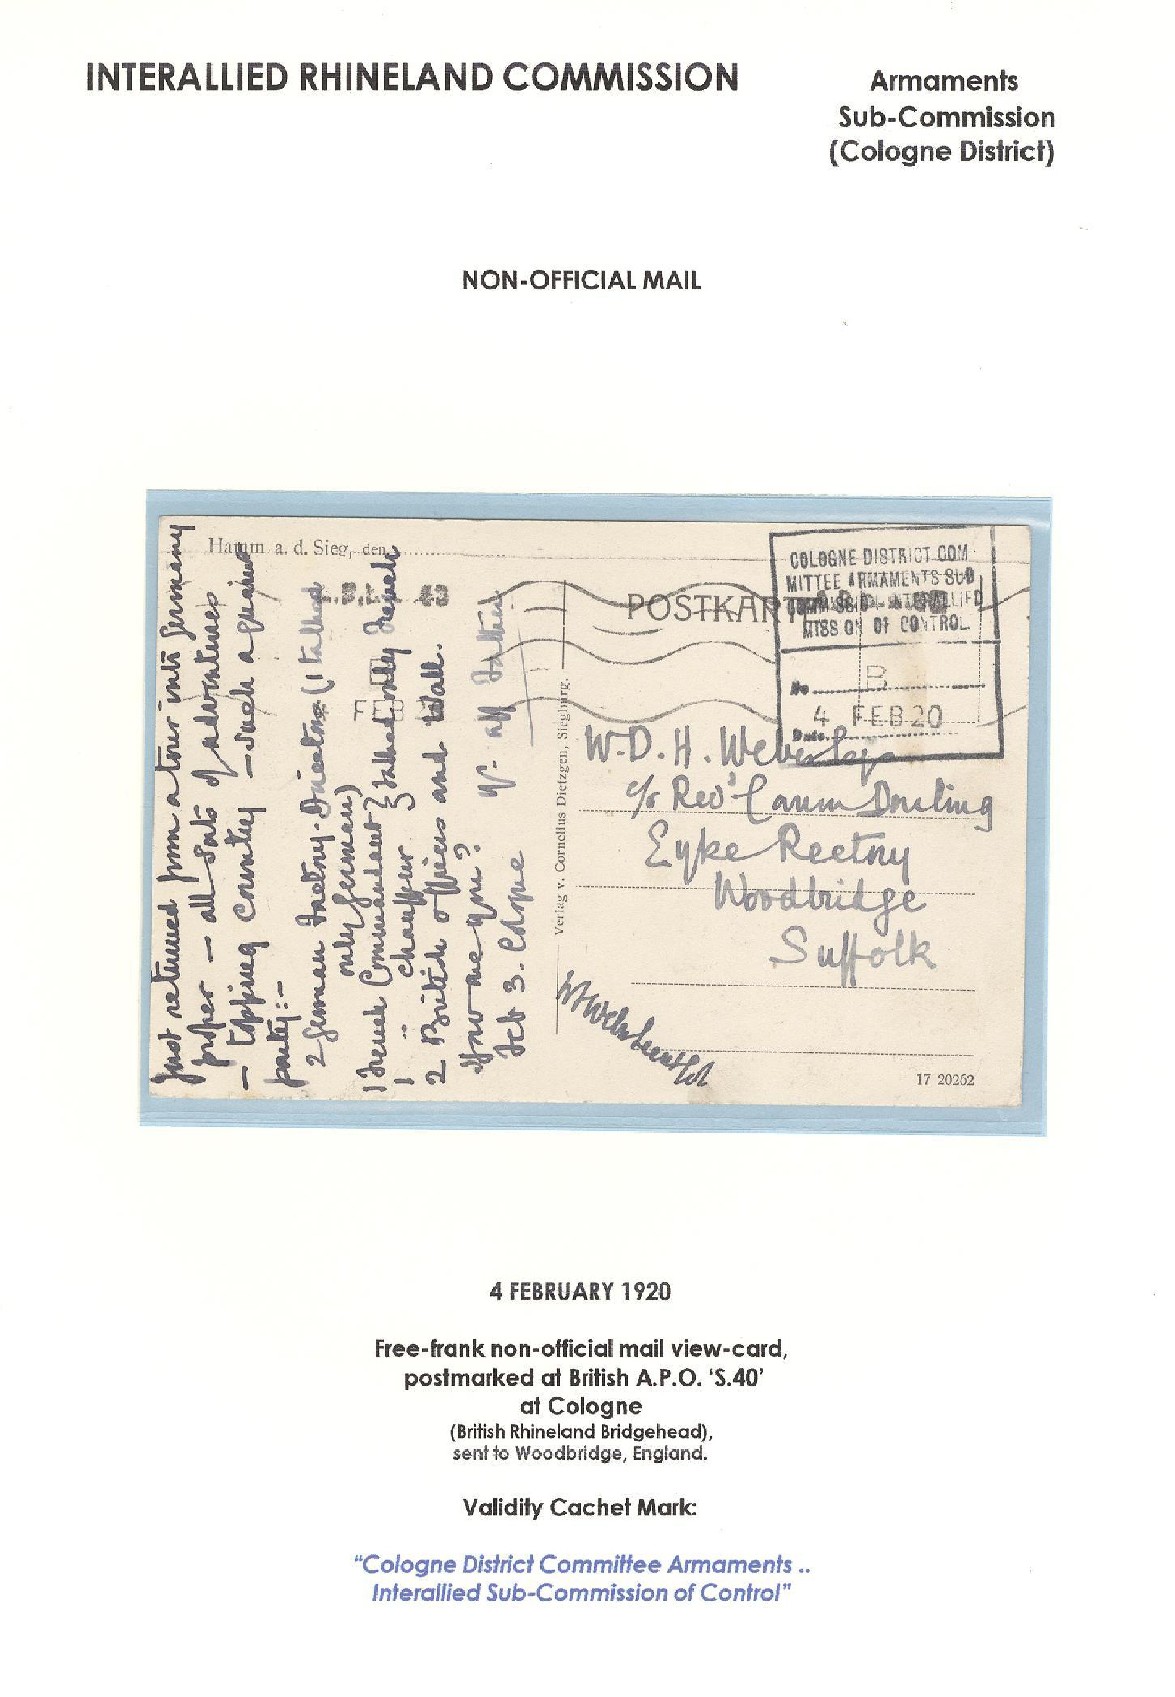 INTERALLIED RHINELAND COMMISSION
Armaments
Sub-Commission
(Cologne District)
NON-OFFICIAL MAIL
Hamm a. d. Sieg, den
POSTKARTE
COLOGNE DISTRICT COM
MITTEE ARMAMENTS SUB
COMMISSION INTERALLIED
MISSION OF CONTROL.
No B
4 FEB 20
Date
Just returned from a tour into Germany
proper – all sorts of adventures
– topping country – such a quaint
party:-
2 German Factory-Directors (I talked
only German)
1 French Commandant } talked only French
1 " chauffeur
2 British officers and Wall.
How are you?
Feb 3. Cologne
Verlag v. Cornelius Dietzgen, Siegburg.
W.D.H. Weber
c/o Revd Dowling
Eyke Rectory
Woodbridge
Suffolk
17 20252
4 FEBRUARY 1920
Free-frank non-official mail view-card,
postmarked at British A.P.O. 'S.40'
at Cologne
(British Rhineland Bridgehead),
sent to Woodbridge, England.
Validity Cachet Mark:
"Cologne District Committee Armaments ..
Interallied Sub-Commission of Control"